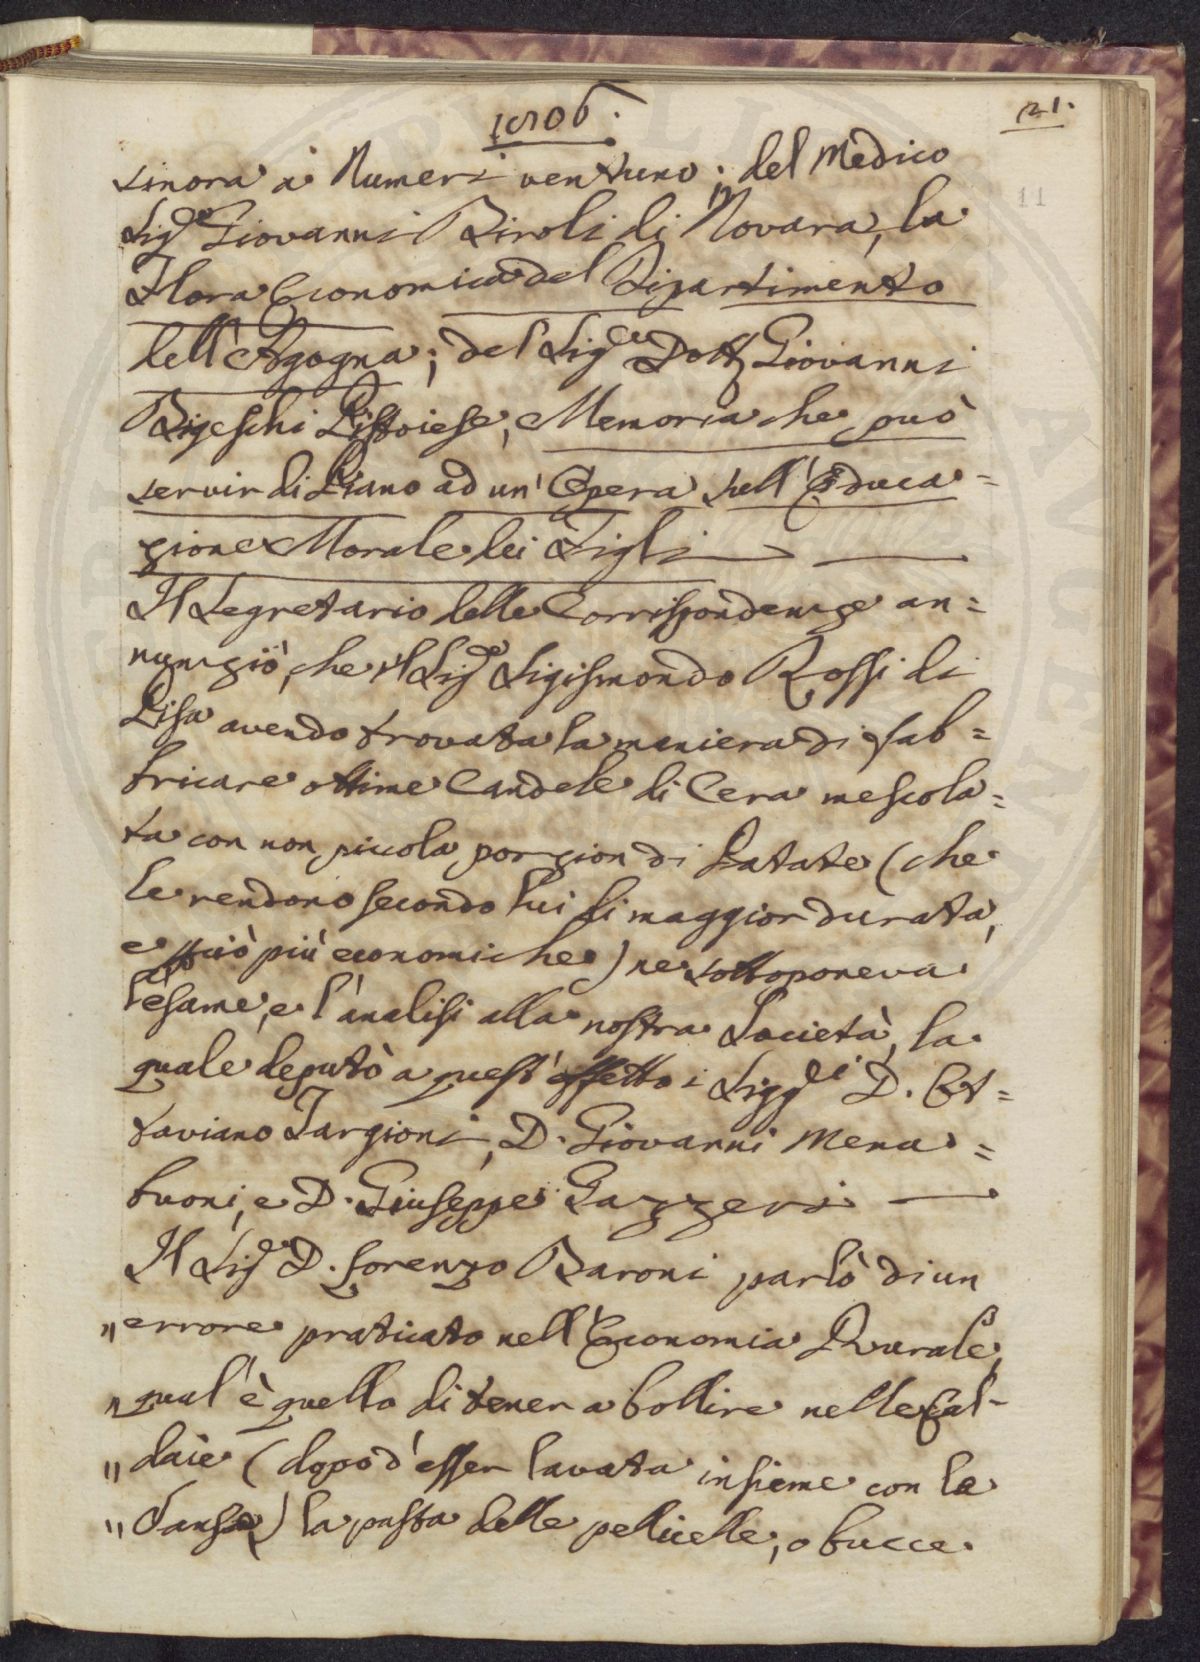 1806.
21.
11
sinora a' Numeri ventuno; del Medico
Sig.re Giovanni Biroli di Novara, la
Flora Economica del Dipartimento
dell'Agogna; del Sig.re Dott. Giovanni
Bigeschi Pistoiese, Memoria che può
servir di Piano ad un'Opera sull'Educa=
zione Morale dei Figli
Il Segretario delle Corrispondenze an=
nunziò, che il Sig.re Sigismondo Rossi di
Pisa avendo trovata la maniera di fab=
bricare ottime Candele di Cera mescola=
ta con non piccola porzion di Patate (che
le rendono secondo lui di maggior durata,
e perciò più economiche) ne sottoponeva
l'esame, e l'analisi alla nostra Società, la
quale deputò a quest'effetto i Sigg.ri D. Ot=
taviano Targioni, D. Giovanni Mena=
buoni, e D. Giuseppe Gazzeri
Il Sig.re D. Lorenzo Baroni parlò di un
" errore praticato nell'Economia Rurale,
" qual'è quello di tener a bollire nelle Cal-
" daie (dopo d'esser lavata insieme con la
" sansa) la pasta delle pellicelle, o bucce